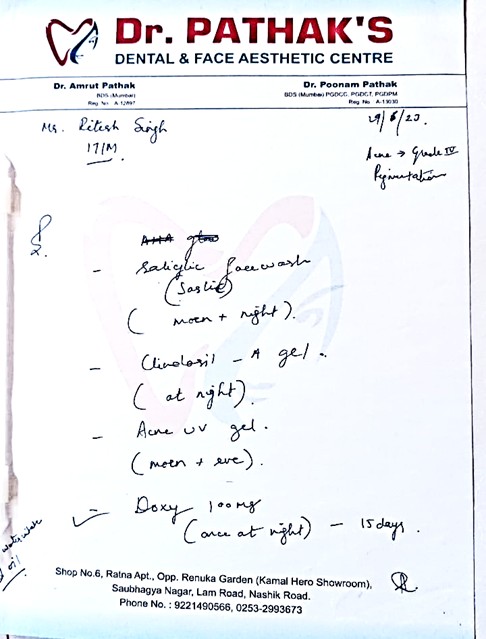 Dr. PATHAK'S
DENTAL & FACE AESTHETIC CENTRE
Dr. Amrut Pathak
BDS (Mumbai)
Reg. No. A-12897
Dr. Poonam Pathak
BDS (Mumbai) PGDCC, PGDCT, PGDPM
Reg. No. A-13030
Ms. Ritesh Singh
17/M
29/6/23.
Acne → Grade IV
Pigmentation
AHA glow
- Saliylic facewash
(Saslic)
(morn + night).
- Clindasil - A gel.
(at night).
- Acne UV gel.
(morn + eve).
- Doxy 100 mg
(once at night) - 15 days.
oil
Shop No.6, Ratna Apt., Opp. Renuka Garden (Kamal Hero Showroom),
Saubhagya Nagar, Lam Road, Nashik Road.
Phone No. : 9221490566, 0253-2993673